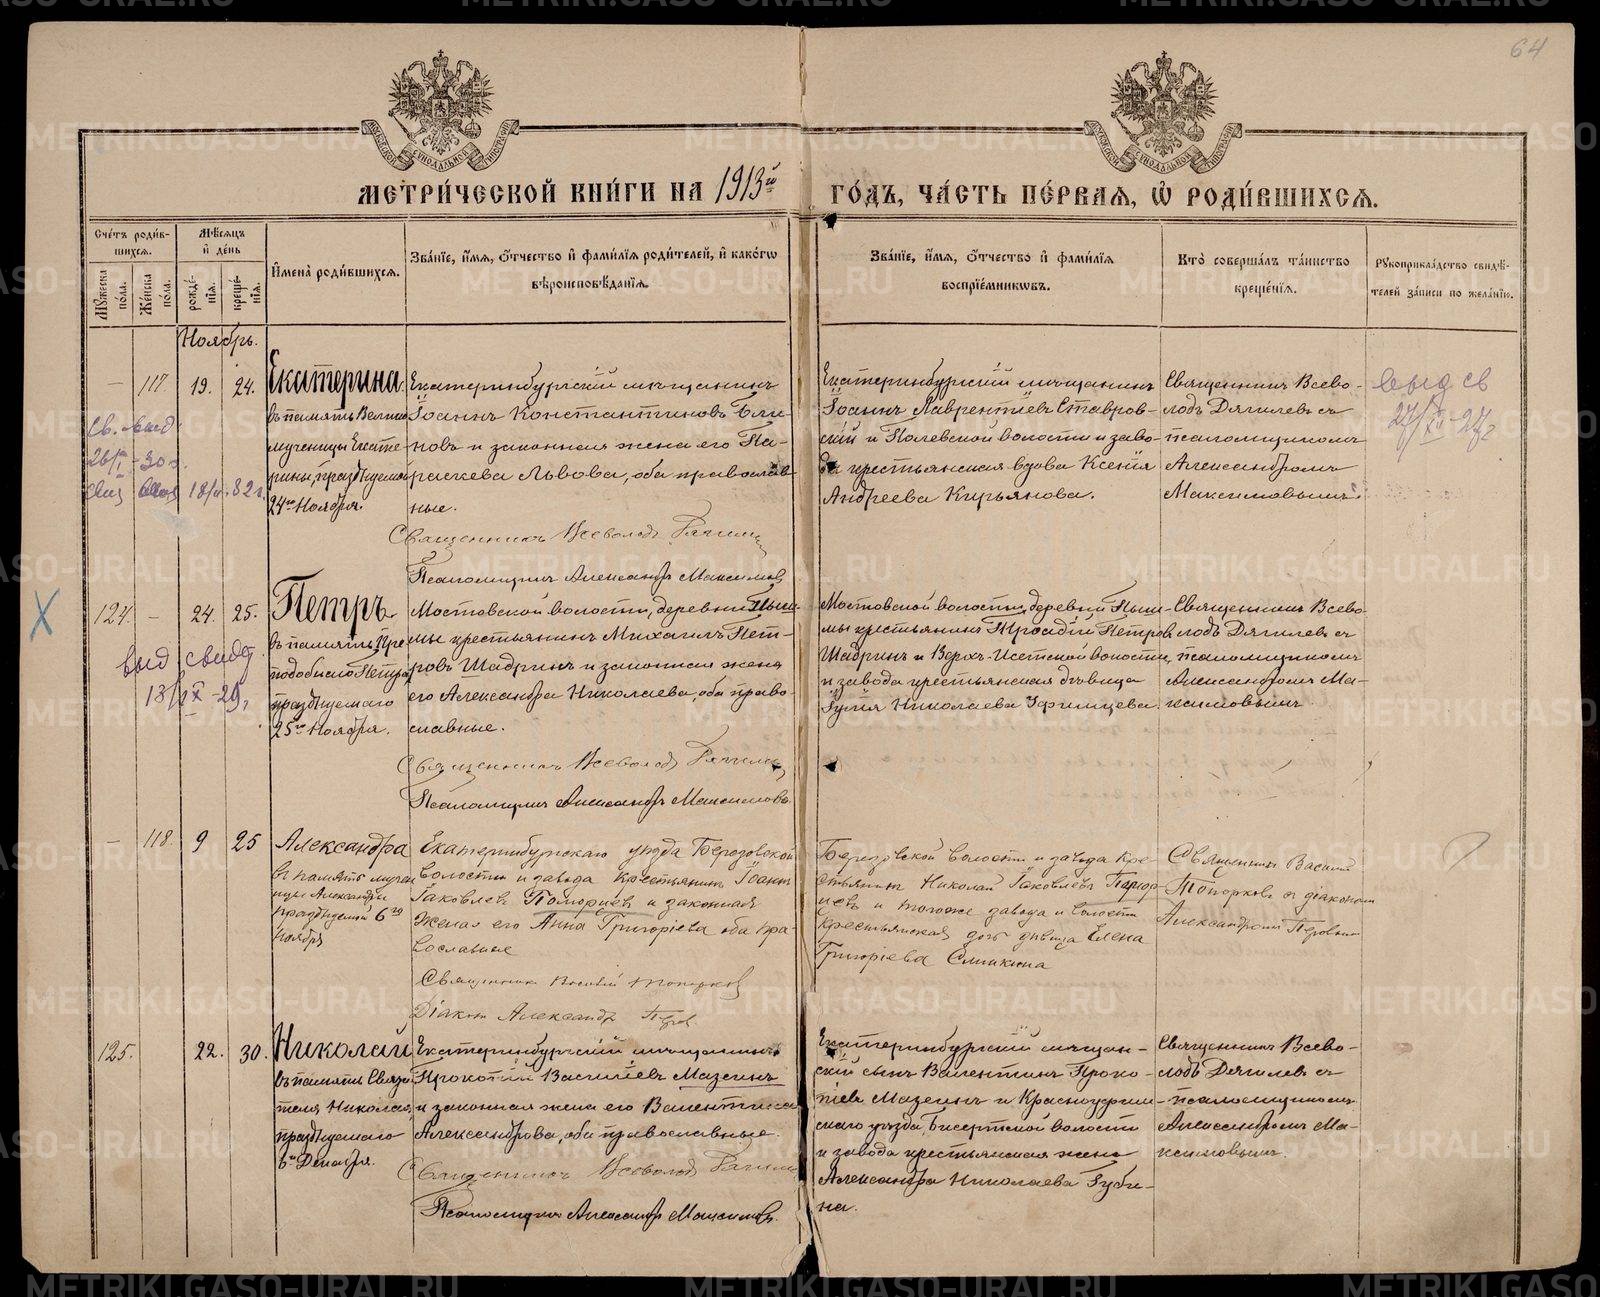 64
МОСКОВСКОЙ СѴНОДАЛЬНОЙ ТИПОГРАФІИ
МОСКОВСКОЙ СѴНОДАЛЬНОЙ ТИПОГРАФІИ
МЕТРИ́ЧЕСКОЙ КНИ́ГИ НА 1913й ГО́ДЪ, ЧА́СТЬ ПЕ́РВАЯ, Ѡ҆ РОДИ́ВШИХСЯ.
Сче́тъ роди́в-
шихся.
Му́жеска
по́ла.
Же́нска
по́ла.
Мѣ́сяцъ
и҆ де́нь
рожде́-
нїя.
креще́-
нїя.
И҆мена̀ роди́вшихся.
Зва́нїе, и҆́мя, ѻ҆́тчество и҆ фами́лїя роди́телей, и҆ како́гѡ
вѣроисповѣ́данїя.
Зва́нїе, и҆́мя, ѻ҆́тчество и҆ фами́лїя
воспрїе́мникѡвъ.
Кто̀ соверша́лъ та́инство
креще́нїя.
Рꙋкоприкла́дство свидѣ́-
телей за́писи по жела́нїю.
Ноябрь.
— 117. 19. 24.
Св. выд.
26/I -30 г.
18/ 82 г.
Екатерина.
въ память Велико
мученицы Екате
рины, празднуемой
24го Ноября.
Екатеринбургскій мѣщанинъ
Іоаннъ Константиновъ Бли-
новъ и законная жена его Па-
раскева Львова, оба православ
ные.
Священникъ Всеволодъ Дягилевъ
Псаломщикъ Александръ Максимовъ
Екатеринбургскій мѣщанинъ
Іоаннъ Лаврентіевъ Ставров-
скій и Полевской волости и заво-
да крестьянская вдова Ксенія
Андреева Кирьянова.
Священникъ Всево-
лодъ Дягилевъ съ
псаломщикомъ
Александромъ
Максимовымъ.
выд св
27/ -27 г
X
124. — 24. 25.
выд свидѣт.
13/IX -29 г
Петръ.
въ память Пре
подобнаго Петра,
празднуемаго
25го Ноября.
Мостовской волости, деревни Пыш-
мы крестьянинъ Михаилъ Пет-
ровъ Шадринъ и законная жена
его Александра Николаева, оба право-
славные.
Священникъ Всеволодъ Дягилевъ
Псаломщикъ Александръ Максимовъ.
Мостовской волости, деревни Пыш-
мы крестьянинъ Аркадій Петровъ
Шадринъ и Верхъ-Исетской волости
и завода крестьянская дѣвица
Николаева Ефимцева.
Священникъ Всево-
лодъ Дягилевъ съ
псаломщикомъ
Александромъ Ма-
ксимовымъ.
— 118. 9 25
Александра
въ память мучен
ицы Александры
празднуемой 6го
ноября
Екатеринбургскаго уѣзда Березовской
волости и завода Крестьянинъ Іоаннъ
Іаковлевъ Поморцевъ и законная
жена его Анна Григоріева оба пра-
вославные
Священникъ Василій Топорковъ
Діаконъ Александръ Перовъ
Березовской волости и завода Кре-
стьянинъ Николай Іаковлевъ Помор
цевъ и тогоже завода и волости
Крестьянская дочь дѣвица Елена
Григоріева
Священникъ Василій
Топорковъ съ діакономъ
Александромъ Перовымъ
125. 22. 30.
Николай
въ память Святи
теля Николая,
празднуемаго
6го Декабря.
Екатеринбургскій мѣщанинъ
Прокопій Васильевъ Мазеинъ
и законная жена его Валентина
Александрова, оба православные.
Священникъ Всеволодъ Дягилевъ
Псаломщикъ Александръ Максимовъ.
Екатеринбургскій мѣщан-
скій сынъ Валентинъ Проко-
піевъ Мазеинъ и Красноуфим-
скаго уѣзда, Бисертской волости
и завода крестьянская жена
Александра Николаева Губи-
на.
Священникъ Всево-
лодъ Дягилевъ съ
псаломщикомъ
Александромъ Ма-
ксимовымъ.
METRIKI.GASO-URAL.RU